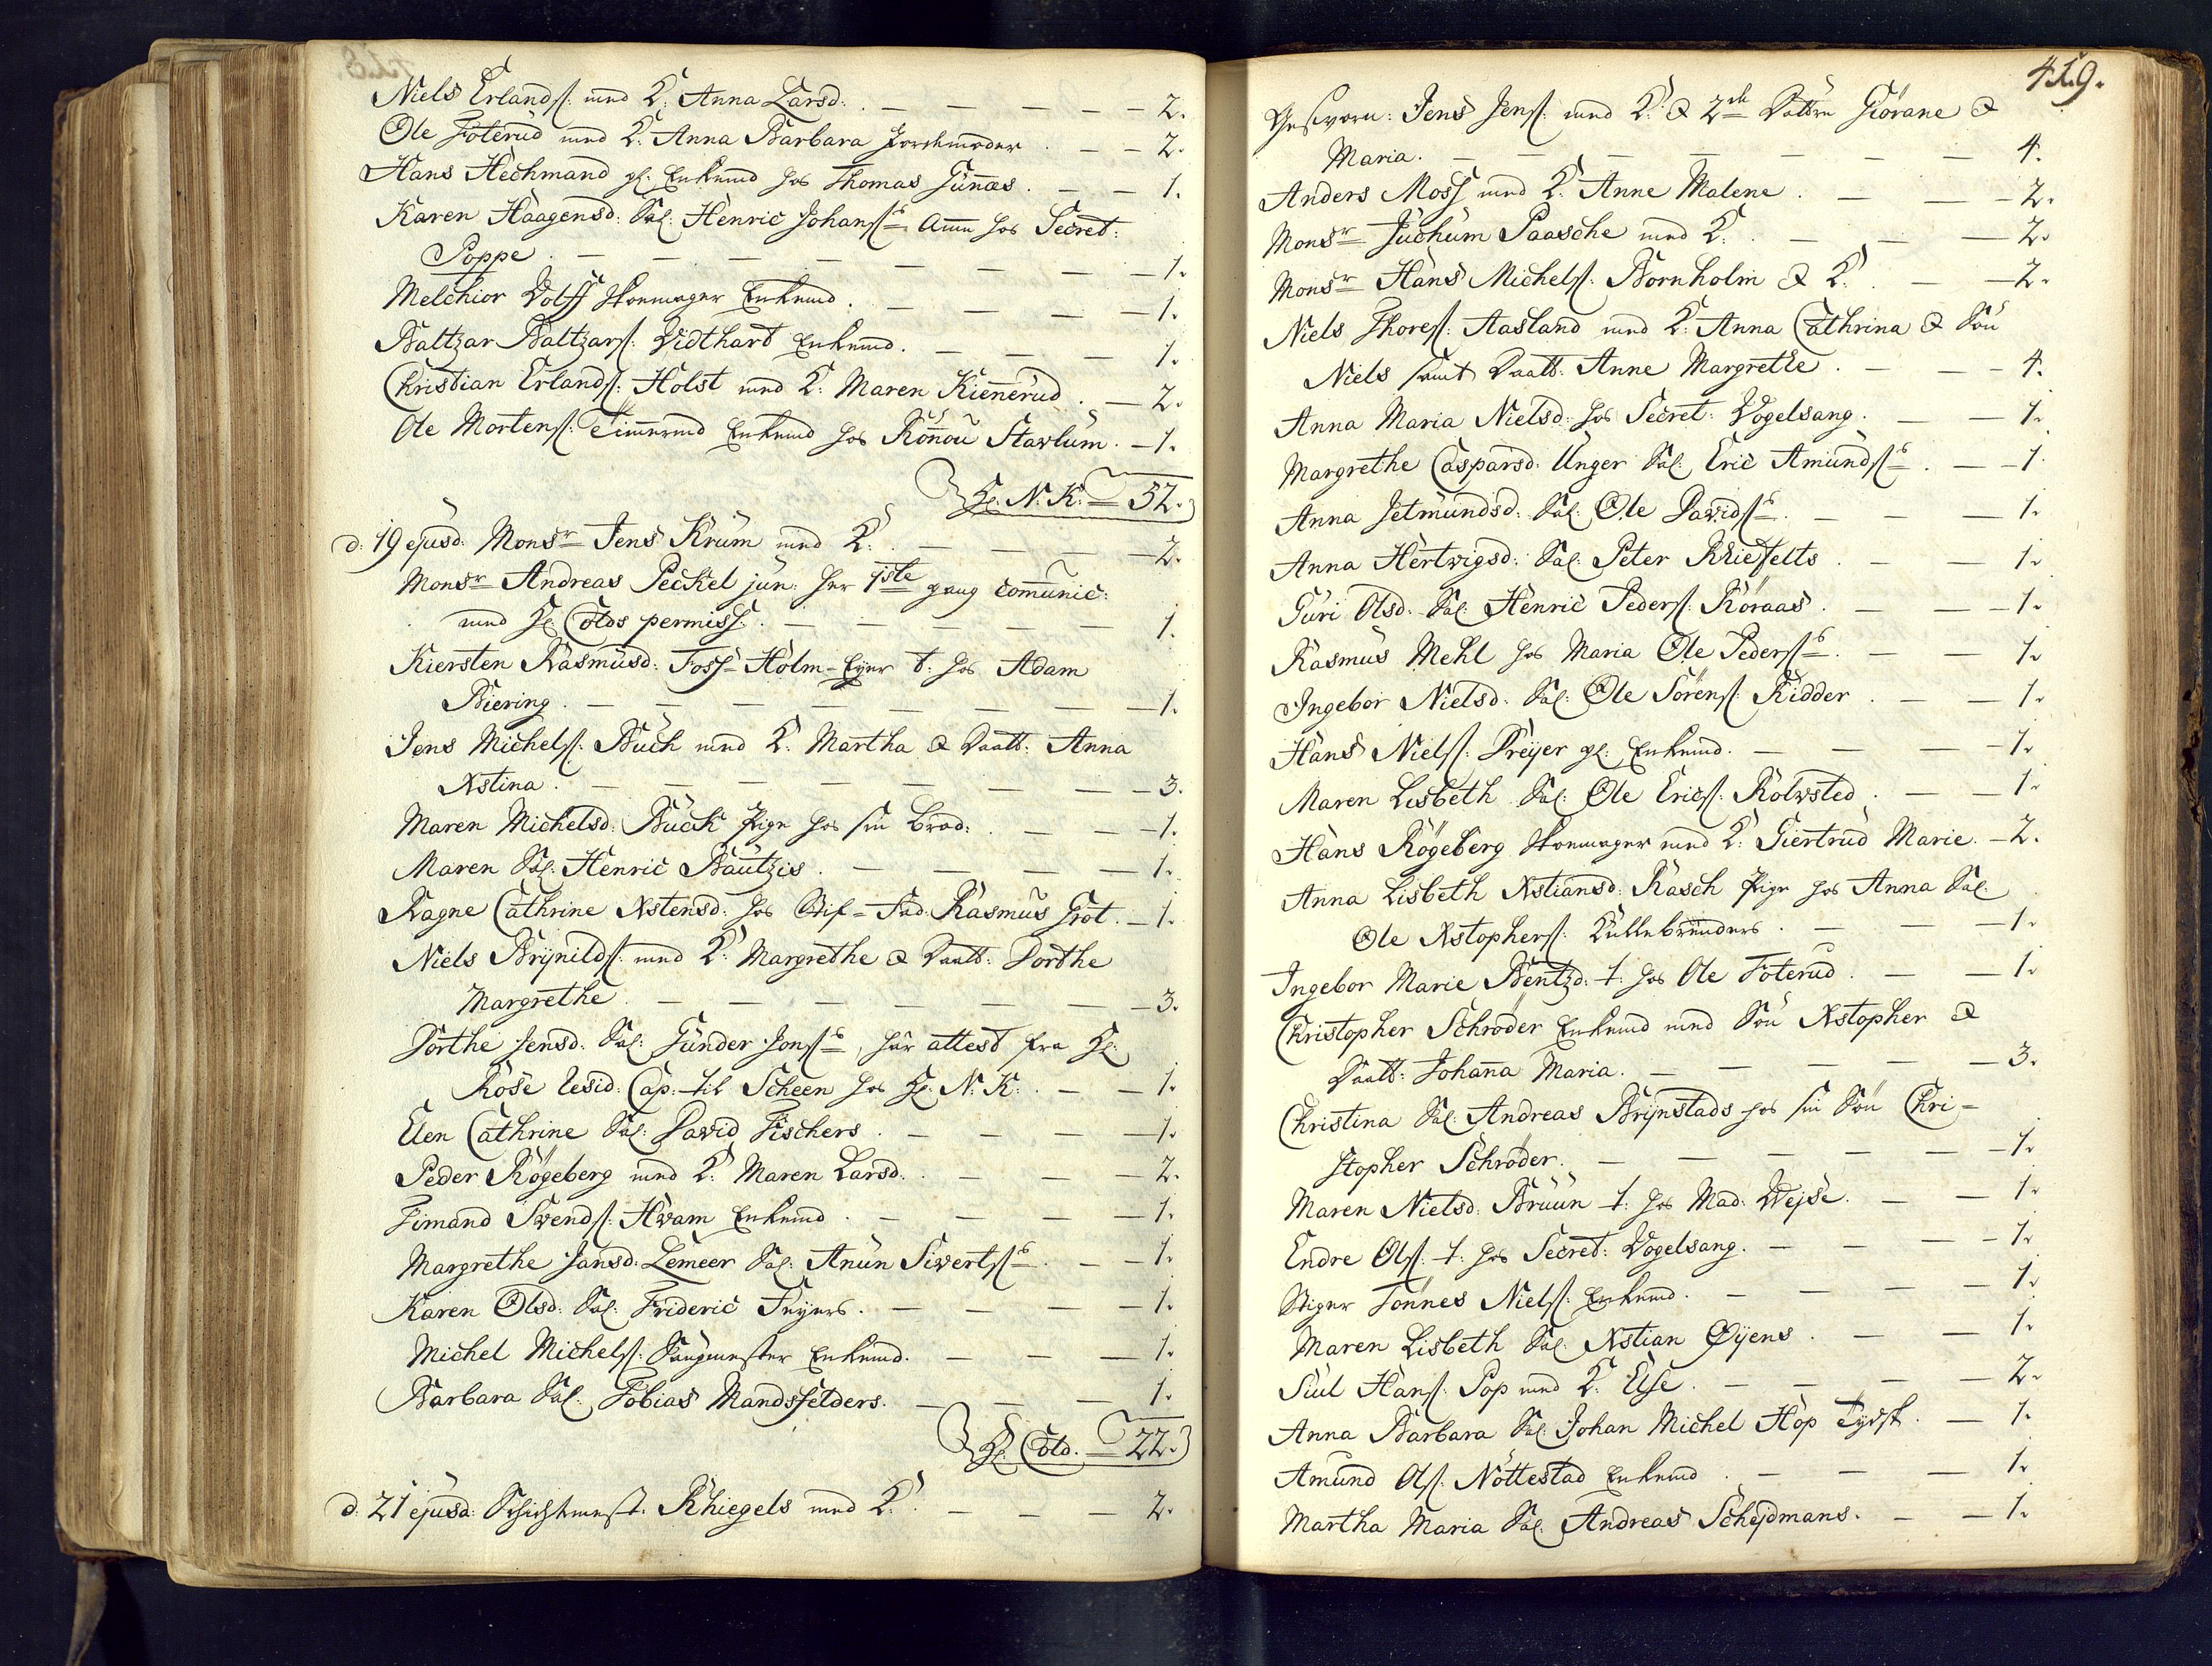 Niels Erlandsſ: med K: Anna Larsd: . — — — — — 2.
Ole Foterud med K: Anna Barbara Jordemoder . — — 2.
Hans Hechmand gl: Enkemd hos Thomas Gunnæs . — — 1.
Karen Haagensd: Sal: Henric Johansſ Amme hos Secret:
Poppe . — — — — — — — — 1.
Melchior Wolff Skomager Enkemd . — — — — 1.
Baltzar Baltzarsſ: Vidthart Enkemd . — — — 1.
Christian Erlandsſ: Holst med K: Maren Kiennerud . — 2.
Ole Mortensſ: Timmermd Enkemd hos Rönnou Stavlum . — 1.
Hr: N: K: = 32.
d: 19 ejusd: Monsr Jens Krum med K: . — — — — 2.
Monsr Andreas Peckel jun: her 1ste gang communic:
med Hr Colds permiss: . — — — — — 1.
Kiersten Rasmusd: Foss-Holm-Eyer t: hos Adam
Biering . — — — — — — — — 1.
Jens Michelsſ: Buch med K: Martha & Daatt: Anna
Xstina . — — — — — — — — 3.
Maren Michelsd: Buck Pige hos sin Brod: . — — — 1.
Maren Sal: Henric Bautzis . — — — — 1.
Ragne Cathrine Xstensd: hos Stif-Fad: Rasmus Grot . — 1.
Niels Brynildsſ: med K: Margrethe & Daatt: Dorthe
Margrethe . — — — — — — — 3.
Dorthe Jensd: Sal: Gunder Jonsſ, har attest fra Hr:
Rose resid: Cap: til Scheen hos Hr: N: K: . — — 1.
Elen Cathrine Sal: David Fischers . — — — — 1.
Peder Rögeberg med K: Maren Larsd: . — — — 2.
Fimand Svendsſ: Hvam Enkemd . — — — — 1.
Margrethe Jansd: Lemeer Sal: Anun Sivertsſ . — — 1.
Karen Olsd: Sal: Frideric Feyers . — — — — 1.
Michel Michelsſ: Saugmester Enkemd . — — — 1.
Barbara Sal: Tobias Mandsfelders . — — — 1.
Hr: Cold. = 22.
d. 21 ejusd: Schichtmest: Rhiegels med K: . — — — 2.
419.
Geschvorn: Jens Jensſ: med K: & 2de Döttre Giörane &
Maria . — — — — — — — 4.
Anders Moss med K: Anne Malene . — — — 2.
Monsr Juchum Paasche med K: . — — — 2.
Monsr Hans Michelsſ: Bornholm & K: . — — 2.
Niels Thoresſ: Aasland med K: Anna Cathrina & Sön
Niels samt Daatt: Anne Margrethe . — — — 4.
Anna Maria Nielsd: hos Secret: Vogelsang . — — 1.
Margrethe Caspersd: Unger Sal: Eric Amundsſ . — — 1.
Anna Jetmundsd: Sal: Ole Davidsſ . — — — 1.
Anna Hertvigsd: Sal: Peter Khiefelts . — — 1.
Guri Olsd: Sal: Henric Pedersſ: Röraas . — — 1.
Rasmus Mehl hos Maria Ole Pedersſ . — — 1.
Ingebor Nielsd: Sal: Ole Sörensſ: Ridder . — — 1.
Hans Nielsſ: Dreyer gl: Enkemd . — — — 1.
Maren Lisbeth Sal: Ole Ericsſ: Kolvsted . — — 1.
Hans Rögeberg Skomager med K: Giertrud Marie . — 2.
Anna Lisbeth Xstiansd: Rasch Pige hos Anna Sal:
Ole Xstophersſ: Kullebrenders . — — — 1.
Ingebor Marie Bentzd: t: hos Ole Foterud . — — 1.
Christopher Schröder Enkemd med Sön Xstopher &
Daatt: Johanna Maria . — — — — 3.
Christina Sal: Andreas Brynstads hos sin Sön Chri-
stopher Schröder . — — — — — 1.
Maren Nielsd: Bruun t: hos Mad: Weyse . — — 1.
Endre Olsſ: t: hos Secret: Vogelsang . — — — 1.
Stiger Tönnes Nielsſ: Enkemd . — — — 1.
Maren Lisbeth Sal: Xstian Öyens . — — 1.
Siul Hansſ: Pop med K: Else . — — — — 2.
Anna Barbara Sal: Johan Michel Hop Tydsk . — 1.
Amund Olsſ: Nöttestad Enkemd . — — — 1.
Martha Maria Sal: Andreas Scheydmans . — — 1.